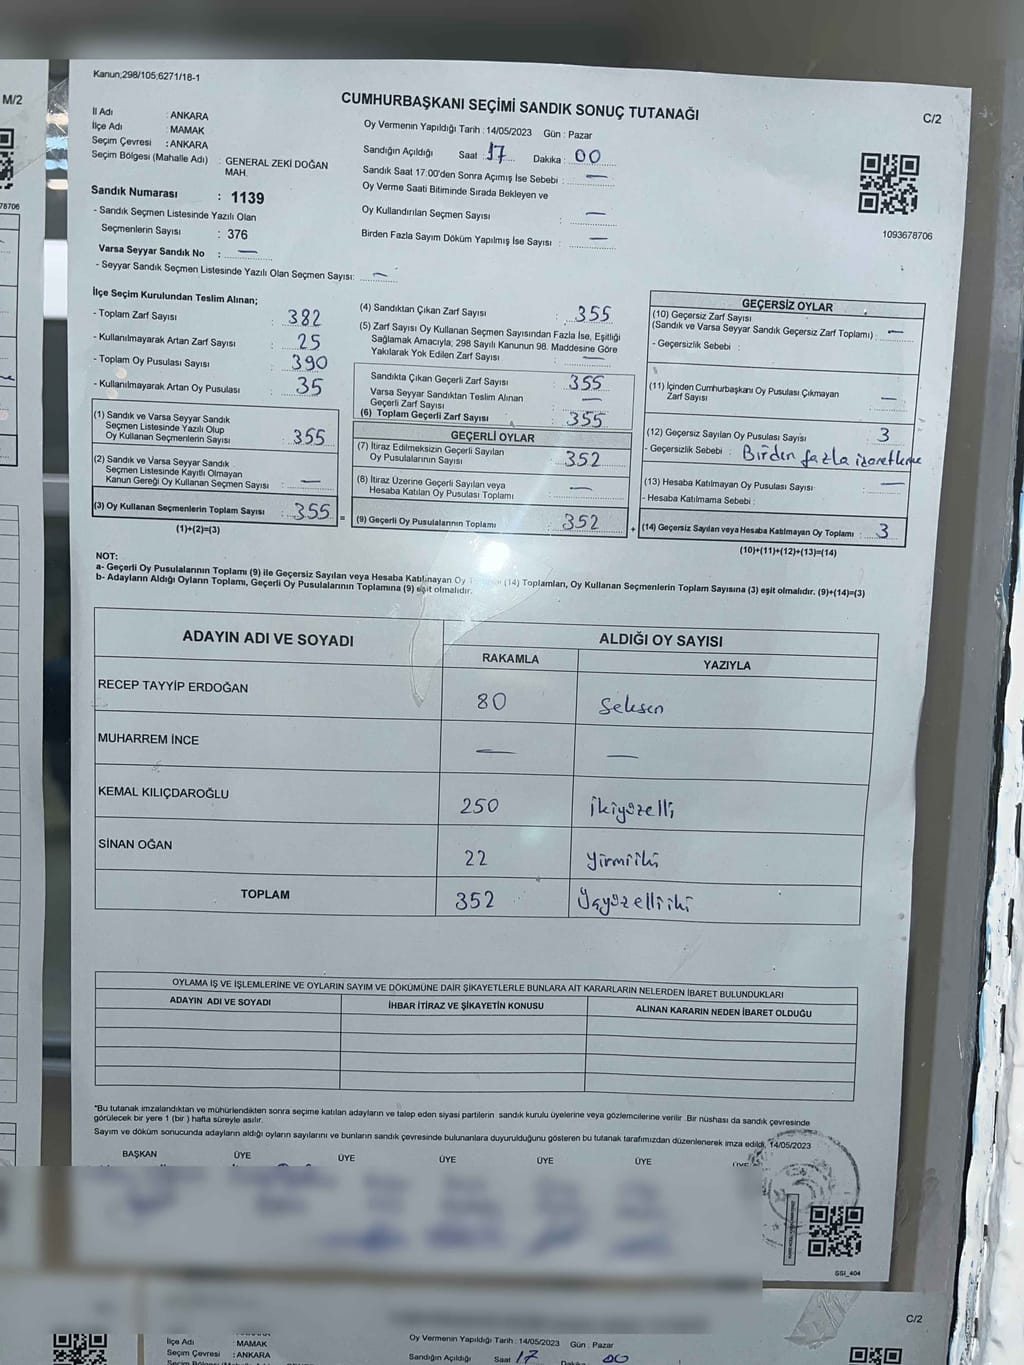 Kanun;298/105;6271/18-1
CUMHURBAŞKANI SEÇİMİ SANDIK SONUÇ TUTANAĞI
C/2
M/2
İl Adı : ANKARA
İlçe Adı : MAMAK
Seçim Çevresi : ANKARA
Seçim Bölgesi (Mahalle Adı) : GENERAL ZEKİ DOĞAN
MAH.
Sandık Numarası : 1139
- Sandık Seçmen Listesinde Yazılı Olan
Seçmenlerin Sayısı : 376
Varsa Seyyar Sandık No : —
- Seyyar Sandık Seçmen Listesinde Yazılı Olan Seçmen Sayısı: —
Oy Vermenin Yapıldığı Tarih : 14/05/2023 Gün : Pazar
Sandığın Açıldığı Saat : 17 Dakika : 00
Sandık Saat 17.00'den Sonra Açımış İse Sebebi : —
Oy Verme Saati Bitiminde Sırada Bekleyen ve
Oy Kullandırılan Seçmen Sayısı : —
Birden Fazla Sayım Döküm Yapılmış İse Sayısı : —
1093678706
78706
İlçe Seçim Kurulundan Teslim Alınan;
- Toplam Zarf Sayısı : 382
- Kullanılmayarak Artan Zarf Sayısı : 25
- Toplam Oy Pusulası Sayısı : 390
- Kullanılmayarak Artan Oy Pusulası : 35
(1) Sandık ve Varsa Seyyar Sandık
Seçmen Listesinde Yazılı Olup
Oy Kullanan Seçmenlerin Sayısı : 355
(2) Sandık ve Varsa Seyyar Sandık
Seçmen Listesinde Kayıtlı Olmayan
Kanun Gereği Oy Kullanan Seçmen Sayısı : —
(3) Oy Kullanan Seçmenlerin Toplam Sayısı : 355
(1)+(2)=(3)
(4) Sandıktan Çıkan Zarf Sayısı : 355
(5) Zarf Sayısı Oy Kullanan Seçmen Sayısından Fazla İse, Eşitliği
Sağlamak Amacıyla; 298 Sayılı Kanunun 98. Maddesine Göre
Yakılarak Yok Edilen Zarf Sayısı : —
Sandıkta Çıkan Geçerli Zarf Sayısı : 355
Varsa Seyyar Sandıktan Teslim Alınan
Geçerli Zarf Sayısı : —
(6) Toplam Geçerli Zarf Sayısı : 355
GEÇERLİ OYLAR
(7) İtiraz Edilmeksizin Geçerli Sayılan
Oy Pusulalarının Sayısı : 352
(8) İtiraz Üzerine Geçerli Sayılan veya
Hesaba Katılan Oy Pusulası Toplamı : —
= (9) Geçerli Oy Pusulalarının Toplamı : 352
GEÇERSİZ OYLAR
(10) Geçersiz Zarf Sayısı
(Sandık ve Varsa Seyyar Sandık Geçersiz Zarf Toplamı) : —
- Geçersizlik Sebebi :
(11) İçinden Cumhurbaşkanı Oy Pusulası Çıkmayan
Zarf Sayısı : —
(12) Geçersiz Sayılan Oy Pusulası Sayısı : 3
- Geçersizlik Sebebi : Birden fazla işaretleme
(13) Hesaba Katılmayan Oy Pusulası Sayısı : —
- Hesaba Katılmama Sebebi :
+ (14) Geçersiz Sayılan veya Hesaba Katılmayan Oy Toplamı : 3
(10)+(11)+(12)+(13)=(14)
NOT:
a- Geçerli Oy Pusulalarının Toplamı (9) ile Geçersiz Sayılan veya Hesaba Katılmayan Oy (14) Toplamları, Oy Kullanan Seçmenlerin Toplam Sayısına (3) eşit olmalıdır. (9)+(14)=(3)
b- Adayların Aldığı Oyların Toplamı, Geçerli Oy Pusulalarının Toplamına (9) eşit olmalıdır.
ADAYIN ADI VE SOYADI ALDIĞI OY SAYISI
RAKAMLA YAZIYLA
RECEP TAYYİP ERDOĞAN 80 Seksen
MUHARREM İNCE — —
KEMAL KILIÇDAROĞLU 250 İkiyüzelli
SİNAN OĞAN 22 Yirmiiki
TOPLAM 352 Üçyüzelliiki
OYLAMA İŞ VE İŞLEMLERİNE VE OYLARIN SAYIM VE DÖKÜMÜNE DAİR ŞİKAYETLERLE BUNLARA AİT KARARLARIN NELERDEN İBARET BULUNDUKLARI
ADAYIN ADI VE SOYADI İHBAR İTİRAZ VE ŞİKAYETİN KONUSU ALINAN KARARIN NEDEN İBARET OLDUĞU
"Bu tutanak imzalandıktan ve mühürlendikten sonra seçime katılan adayların ve talep eden siyasi partilerin sandık kurulu üyelerine veya gözlemcilerine verilir. Bir nüshası da sandık çevresinde
görülecek bir yere 1 (bir ) hafta süreyle asılır.
Sayım ve döküm sonucunda adayların aldığı oyların sayılarını ve bunların sandık çevresinde bulunanlara duyurulduğunu gösteren bu tutanak tarafımızdan düzenlenerek imza edildi. 14/05/2023
BAŞKAN ÜYE ÜYE ÜYE ÜYE ÜYE ÜYE
SSI_404
C/2
İlçe Adı : MAMAK
Seçim Çevresi : ANKARA
Oy Vermenin Yapıldığı Tarih : 14/05/2023 Gün : Pazar
Sandığın Açıldığı Saat : 17 Dakika : 00